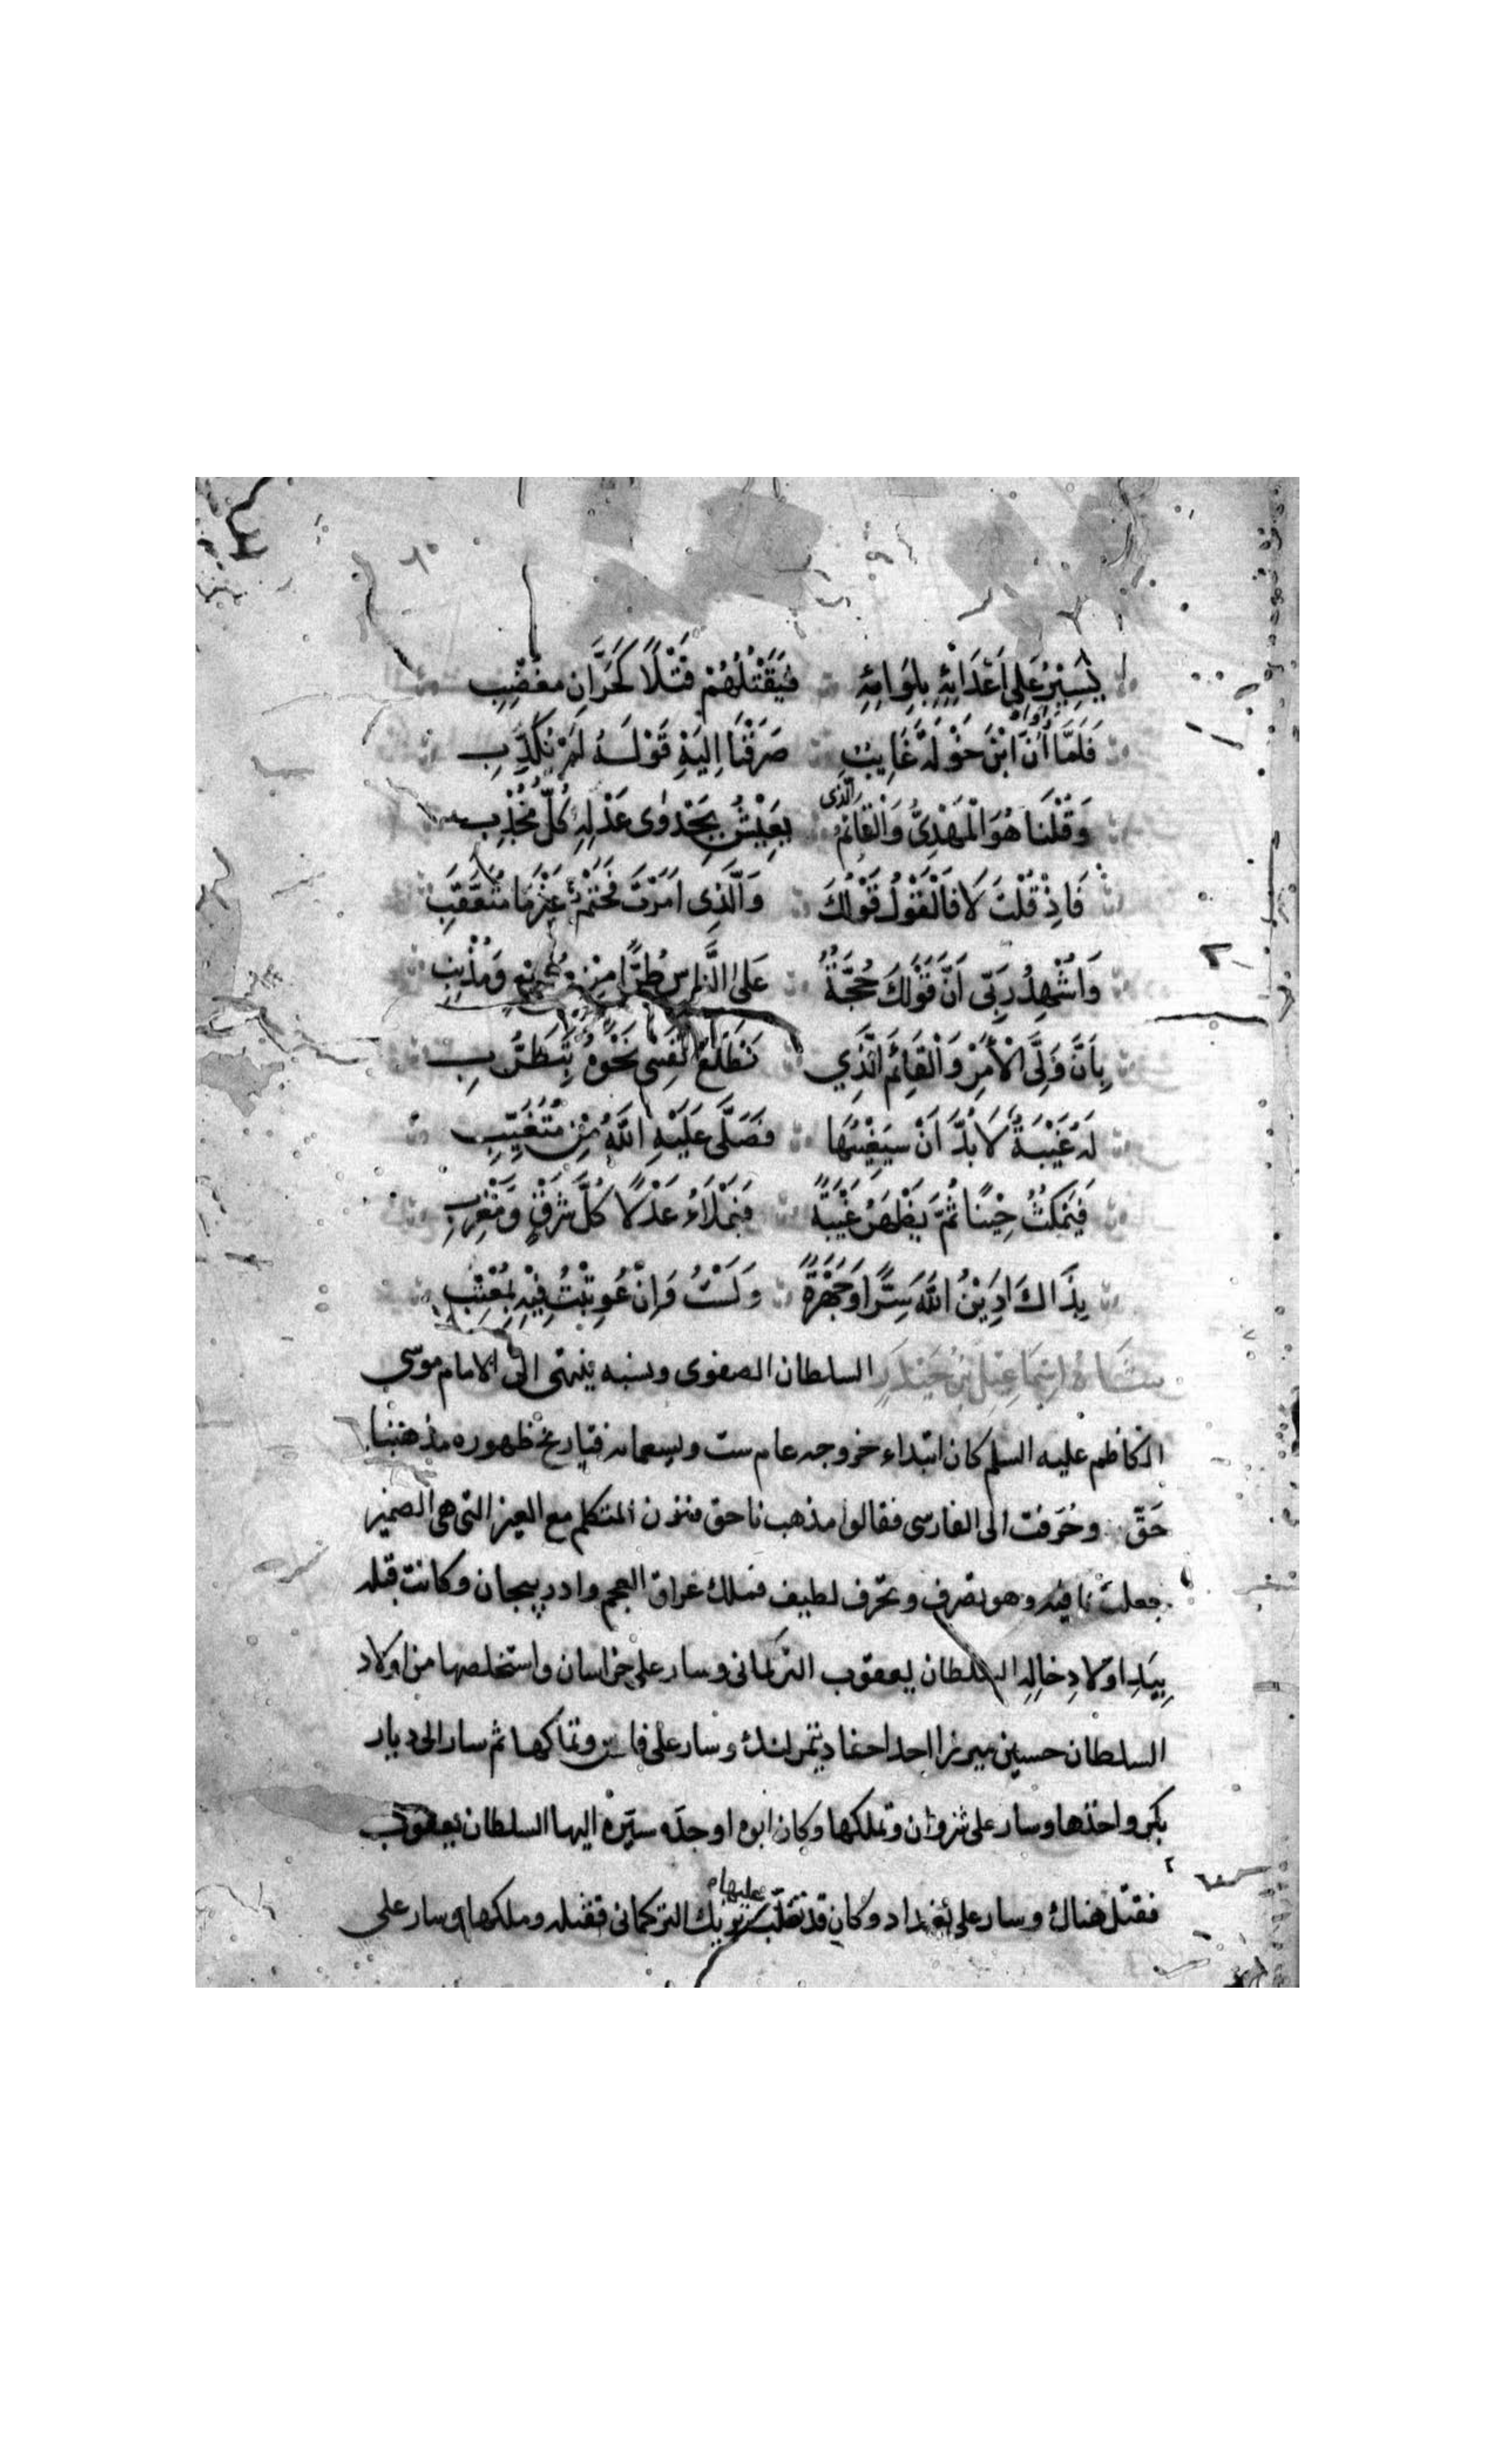 ٦٠
يَسِيْرُ عَلى اَعْدَائِهِ بِلِوَائِهِ فَيَقْتُلُهُمْ قَتْلًا كَحَرَّانِ مغْضِبِ
فَلَمَّا رَوَاه اَنَّ ابْنَ خَوْلَةَ غَايِبٌ صَرَفْنَا اِلَيْهِ قَوْلَنَا لَمْ نُكَذِّبِ
وَقُلْنَا هُوَ الْمَهْدِيُّ وَالْقَائمُ الَّذى يَعِيْشُ بِجَدْوٰى عَدْلِهِ كُلُّ مُجْدِبِ
فَاِذْ قُلْتَ لَا فَالْقَوْلُ قَوْلُكَ وَالَّذِى اَمَرْتَ فَحَتْمٌ غَيْرُ مَا مُتَعَقَّبِ
وَاُشْهِدُ رَبِّى اَنَّ قَوْلَكَ حُجَّةٌ عَلَى النَّاسِ طُرًّا مِنْ وَمُذْنِبِ
بِاَنَّ وَلِىَّ الْاَمْرِ وَالْقَائِمَ الَّذِي تَطَلَّعُ نَفْسِى نَحْوَهُ بِتَطَرُّبِ
لَهُ غَيْبَةٌ لَا بُدَّ اَنْ سَيَغِيْبُهَا فَصَلَّى عَلَيْهِ اللهُ مِنْ مُتَغَيِّبِ
فَيَمْكُثُ حِيْنًا ثُمَّ يَظْهَرُ غَيْبَةً فَيَمْلَاءُ عَدْلًا كُلَّ شَرْقٍ وَمَغْرِبِ
بِذَاكَ اَدِيْنُ اللهَ سِرًّا وَجَهْرَةً وَلَسْتُ وَاِنْ عُوتِبْتُ فِيْهِ بِمُعْتِبِ
شَاه اِسْمَاعِيْلُ بْنُ حَيْدَرٍ السلطان الصفوى ونسبه ينهتى الى الامام موسى
الكاظم عليه السلم كان ابتداء خروجه عام ست وتسعمائه فتاريخ ظهوره مذهبنا
حَقّ وحُرفت الى الفارسى فقالوا مذهب ناحق فنون المتكلم مع الغير التى هى الضمير
جعلت نا فيه وهو تصرف وتحرف لطيف فملك عراق العجم وادربيجان وكانت قبله
بِيَدِ اولادِ خالِهِ السلطان يعقوب التركمانى وسار على خراسان واستخلصها من اولاد
السلطان حسين ميرزا احد احفاد تيمر لنك وسار على فارس وتملكها ثم سار الى ديار
بكر واخذها وسار على شروان وتملكها وكان ابوه او جدّه سيّره اليها السلطان يعقوب
فقتل هناك وسار على بغداد وكان قد تغلّب عليها بك التركمانى فقتله وملكها وسار على